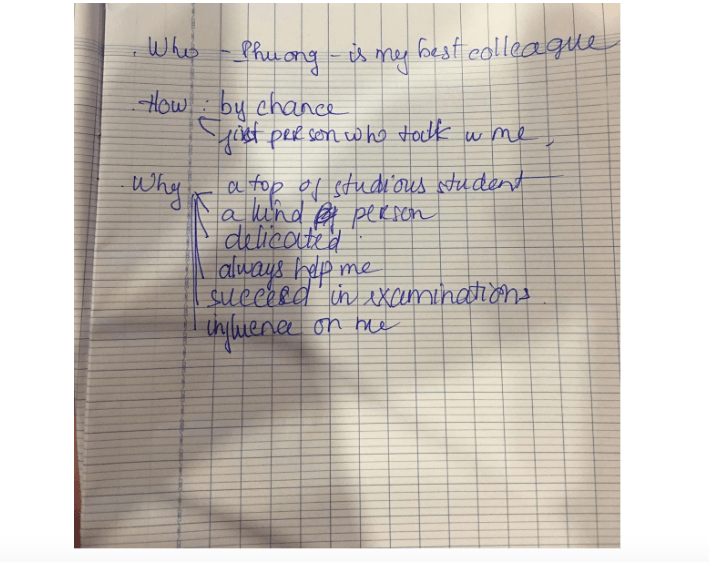 . Who - Phuong - is my best colleague
. How : by chance
first person who talk w me,
. Why a top of studious student
a kind person
delicated .
always help me
succeed in examinations.
influence on me